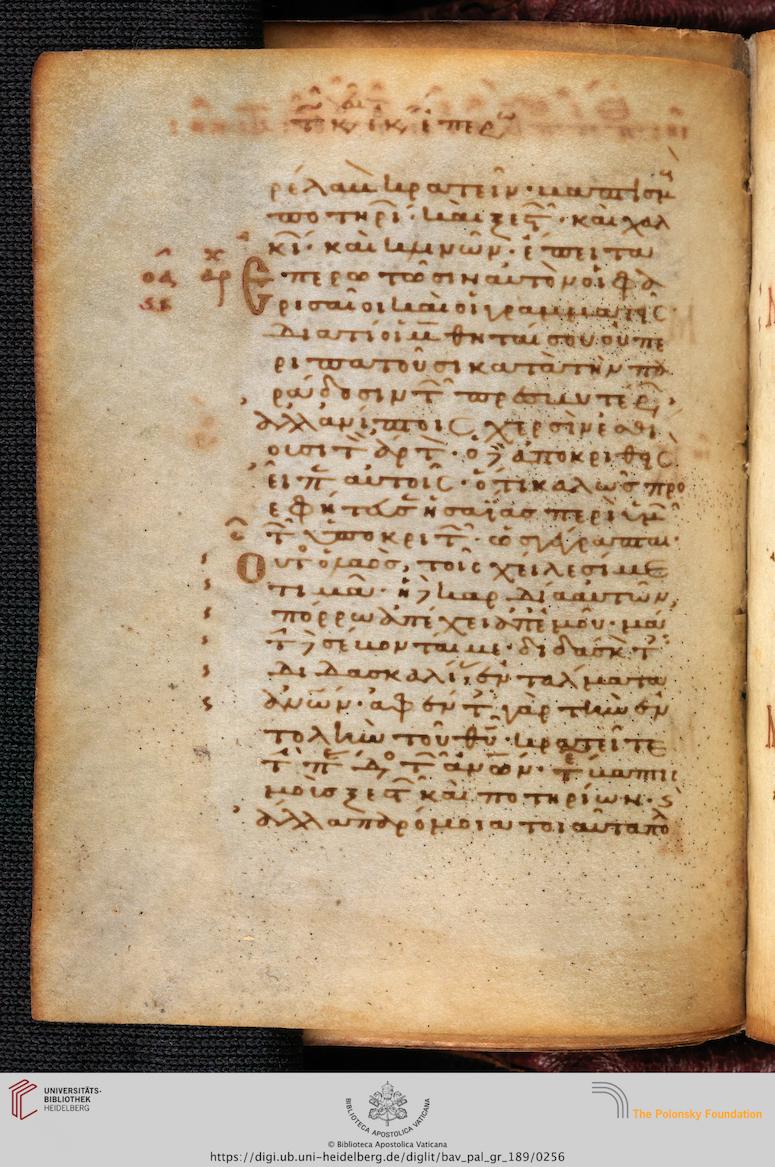 ρέλαβον κρατεῖν· βαπτισμ
ποτηρί· καὶ ξεστ· καὶ χαλ
κί· καὶ κλινῶν· ἔπειτα
Επερωτῶσιν αὐτὸν οἱ φα
ρισαῖοι καὶ οἱ γραμματεῖς
Διατί οἱ μαθηταί σου οὐ πε
ριπατοῦσι κατὰ τὴν πα
ράδοσιν τ πρεσβυτέρ,
ἀλλὰ νίπτοις χερσὶν ἐσθί
ουσι τ ἄρτ· ὁ δὲ ἀποκριθεὶς
εἶπ αὐτοῖς· ὅτι καλῶς προ
εφήτευσ ἠσαΐας περὶ ὑμ
τ ὑποκριτ· ὡς γέγραπται·
Οὗτ ὁ λαὸς, τοῖς χείλεσί με
τιμᾶ· ἡ δὲ καρδία αὐτῶν,
πόρρω ἀπέχει ἀπ' ἐμοῦ· μά
τ δὲ σέβονταί με· διδάσκ
Διδασκαλί, ἐντάλματα
ἀνων· ἀφέντ γὰρ τὴν ἐν
τολὴν τοῦ θυ· κρατεῖτε
τ π τ ἀνων· βαπτι
μοὺς ξεστ καὶ ποτηρίων·
ἄλλα παρόμοια τοιαῦτα πολ
UNIVERSITÄTS-
BIBLIOTHEK
HEIDELBERG
BIBLIOTECA APOSTOLICA VATICANA
The Polonsky Foundation
© Biblioteca Apostolica Vaticana
https://digi.ub.uni-heidelberg.de/diglit/bav_pal_gr_189/0256